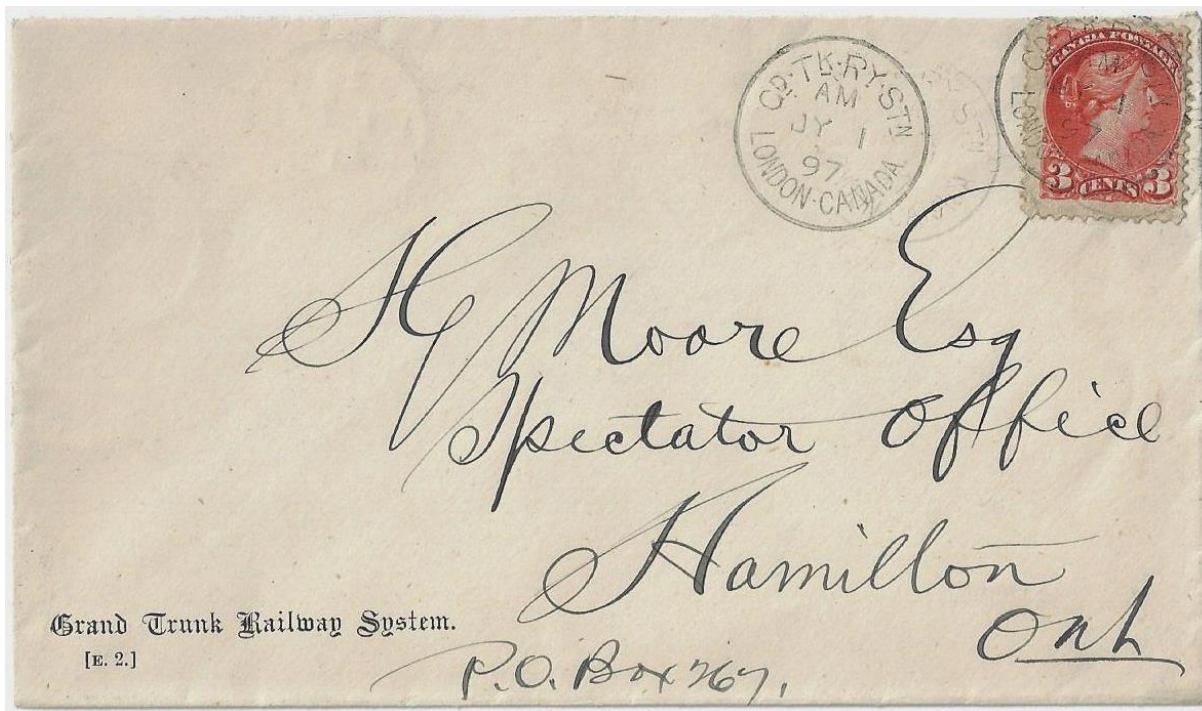 GD. TK. RY. STN
AM
JY 1
97
LONDON · CANADA
CANADA POSTAGE
3 CENTS 3
H Moore Esq
Spectator Office
Hamilton
Ont
Grand Trunk Railway System.
[E. 2.]
P.O. Box 767.